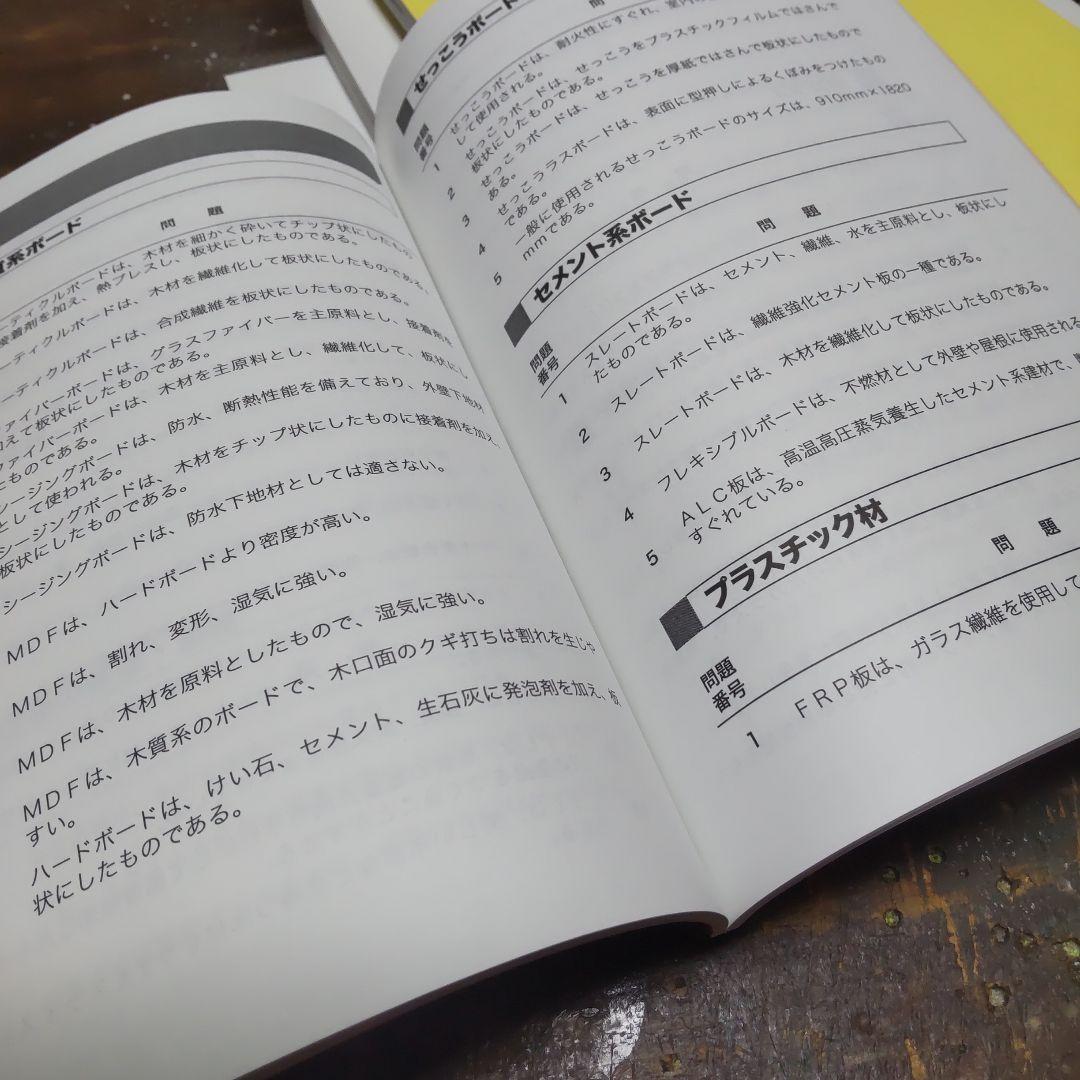 質系ボード
問 題
ーティクルボードは、木材を細かく砕いてチップ状にしたもの
接着剤を加え、熱プレスし、板状にしたものである。
ーティクルボードは、木材を繊維化して板状にしたものである。
ーティクルボードは、合成繊維を板状にしたものである。
ァイバーボードは、グラスファイバーを主原料とし、接着剤を
加えて板状にしたものである。
ファイバーボードは、木材を主原料とし、繊維化して、板状にし
たものである。
シージングボードは、防水、断熱性能を備えており、外壁下地材
として使われる。
シージングボードは、木材をチップ状にしたものに接着剤を加え、
板状にしたものである。
シージングボードは、防水下地材としては適さない。
MDFは、ハードボードより密度が高い。
MDFは、割れ、変形、湿気に強い。
MDFは、木材を原料としたもので、湿気に強い。
MDFは、木質系のボードで、木口面のクギ打ちは割れを生じや
すい。
ハードボードは、けい石、セメント、生石灰に発泡剤を加え、板
状にしたものである。
せっこうボード
問
問題
番号
1 せっこうボードは、耐火性にすぐれ、室内の
して使用される。
2 せっこうボードは、せっこうをプラスチックフィルムではさんで
板状にしたものである。
3 せっこうボードは、せっこうを厚紙ではさんで板状にしたもので
ある。
4 せっこうラスボードは、表面に型押しによるくぼみをつけたもの
である。
5 一般に使用されるせっこうボードのサイズは、910mm×1820
mmである。
セメント系ボード
問 題
問題
番号
1 スレートボードは、セメント、繊維、水を主原料とし、板状にし
たものである。
2 スレートボードは、繊維強化セメント板の一種である。
3 スレートボードは、木材を繊維化して板状にしたものである。
4 フレキシブルボードは、不燃材として外壁や屋根に使用される
5 ALC板は、高温高圧蒸気養生したセメント系建材で、
すぐれている。
プラスチック材
問 題
問題
番号
1 FRP板は、ガラス繊維を使用して